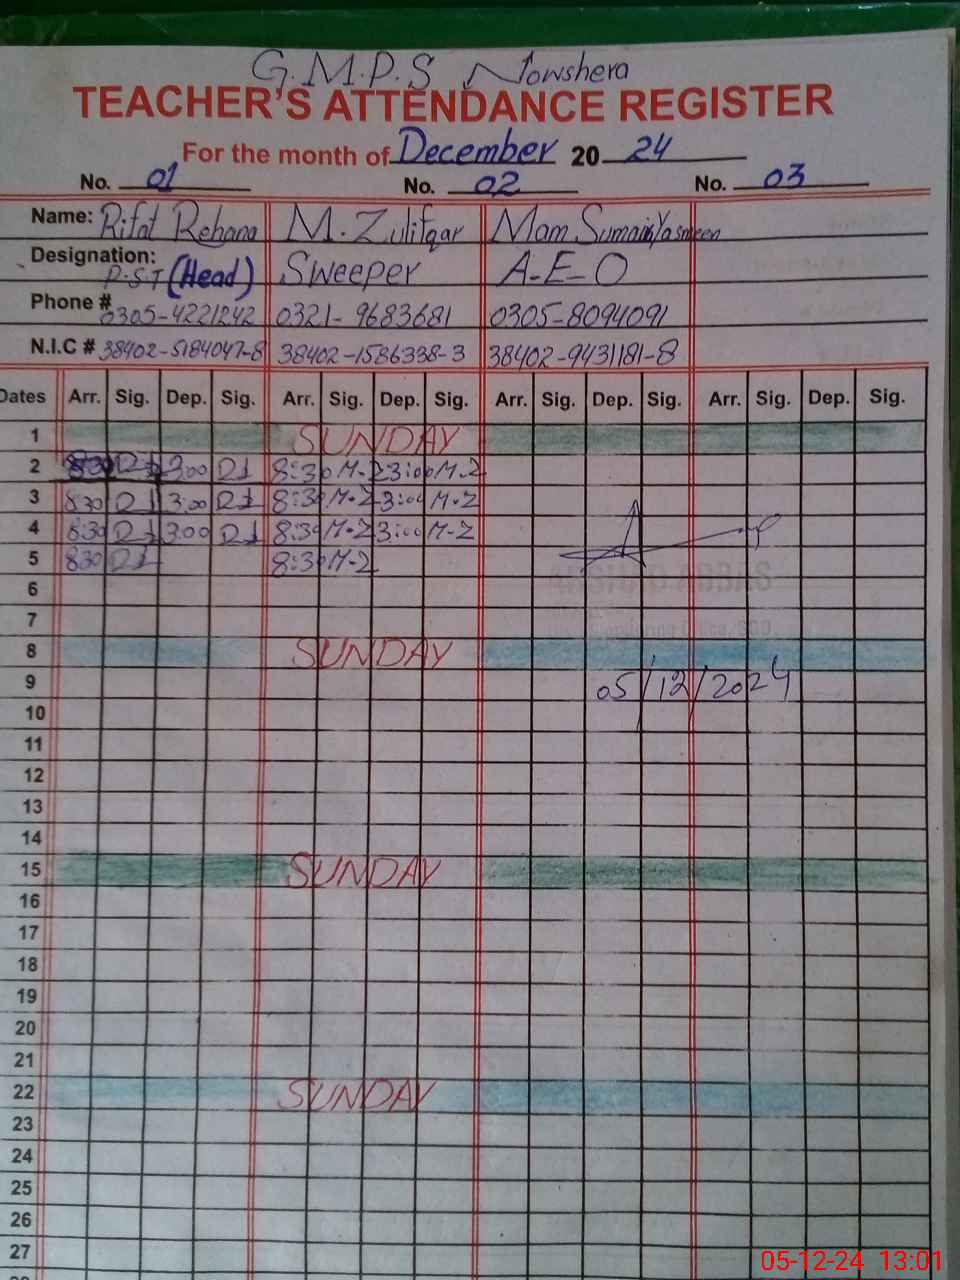 G.M.P.S Nowshera
TEACHER'S ATTENDANCE REGISTER
For the month of December 20 24
No. 01 No. 02 No. 03
Name: Rifat Rehana M. Zulifqar Mam Sumaira Yasmeen
Designation: P.S.T (Head) Sweeper A-E-O
Phone # 0305-4221242 0321-9683681 0305-8094091
N.I.C # 38402-5184047-8 38402-1586338-3 38402-9431181-8
Dates Arr. Sig. Dep. Sig. Arr. Sig. Dep. Sig. Arr. Sig. Dep. Sig. Arr. Sig. Dep. Sig.
1 SUNDAY
2 8:30 3:00 8:30 M-Z 3:00 M-Z
3 8:30 3:00 8:30 M-Z 3:00 M-Z
4 8:30 3:00 8:30 M-Z 3:00 M-Z
5 8:30 8:30 M-Z
ARSHAD ABBAS
6
7
8 SUNDAY
9 05/12/2024
10
11
12
13
14
15 SUNDAY
16
17
18
19
20
21
22 SUNDAY
23
24
25
26
27
05-12-24 13:01